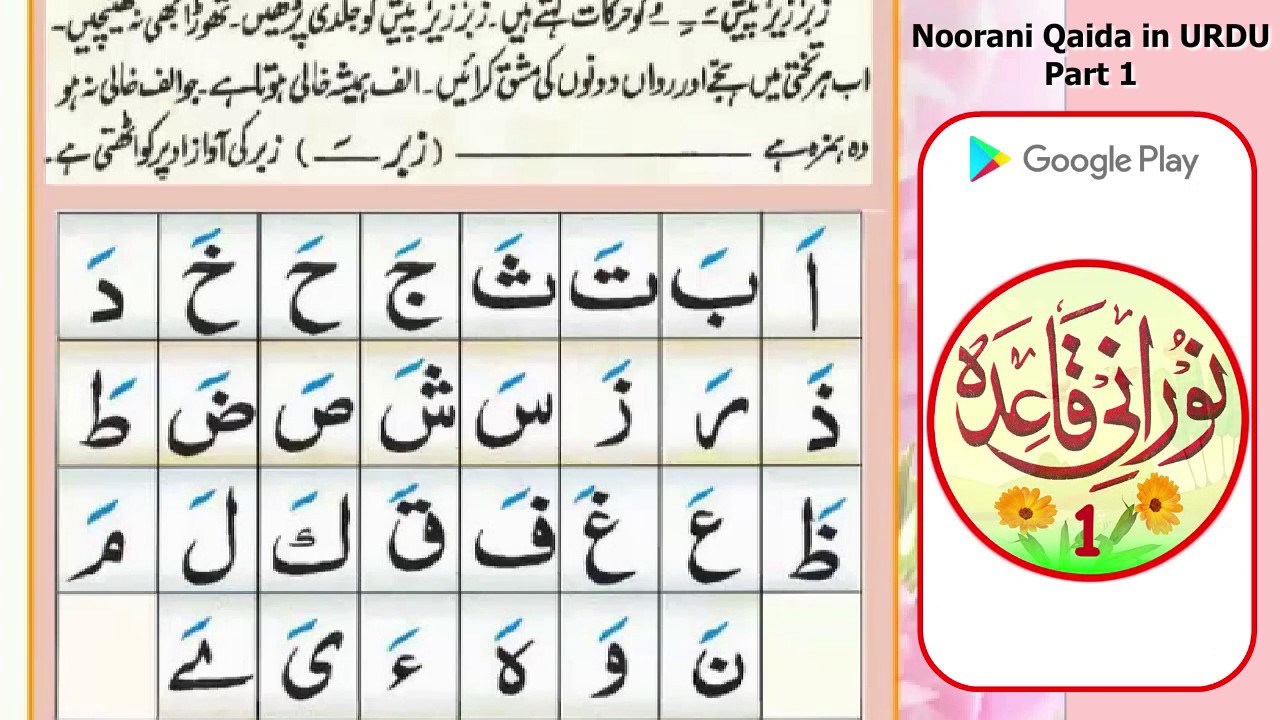 زبر زیر پیش ـَـِـُ کو حرکات کہتے ہیں۔ زبر زیر پیش کو جلدی پڑھیں۔ تھوڑا بھی نہ کھینچیں۔
اب ہر تختی میں ہجے اور رواں دونوں کی مشق کرائیں۔ الف ہمیشہ خالی ہوتا ہے۔ جو الف خالی نہ ہو
وہ ہمزہ ہے ـــــــ (زبر ـَـ) زبر کی آواز اوپر کو اٹھتی ہے۔
اَ بَ تَ ثَ جَ حَ خَ دَ
ذَ رَ زَ سَ شَ صَ ضَ طَ
ظَ عَ غَ فَ قَ كَ لَ مَ
نَ وَ هَ ءَ یَ ےَ
Noorani Qaida in URDU
Part 1
Google Play
نُورَانِی قَاعِدَہ
1